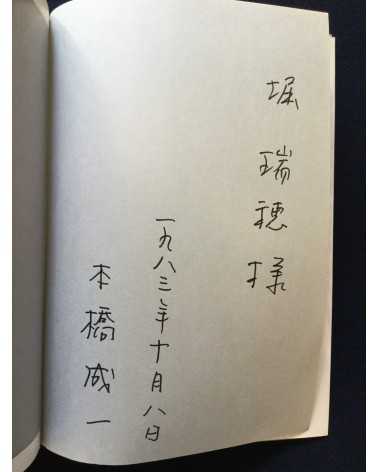 堀瑞穂様
一九八三年十月八日
本橋成一